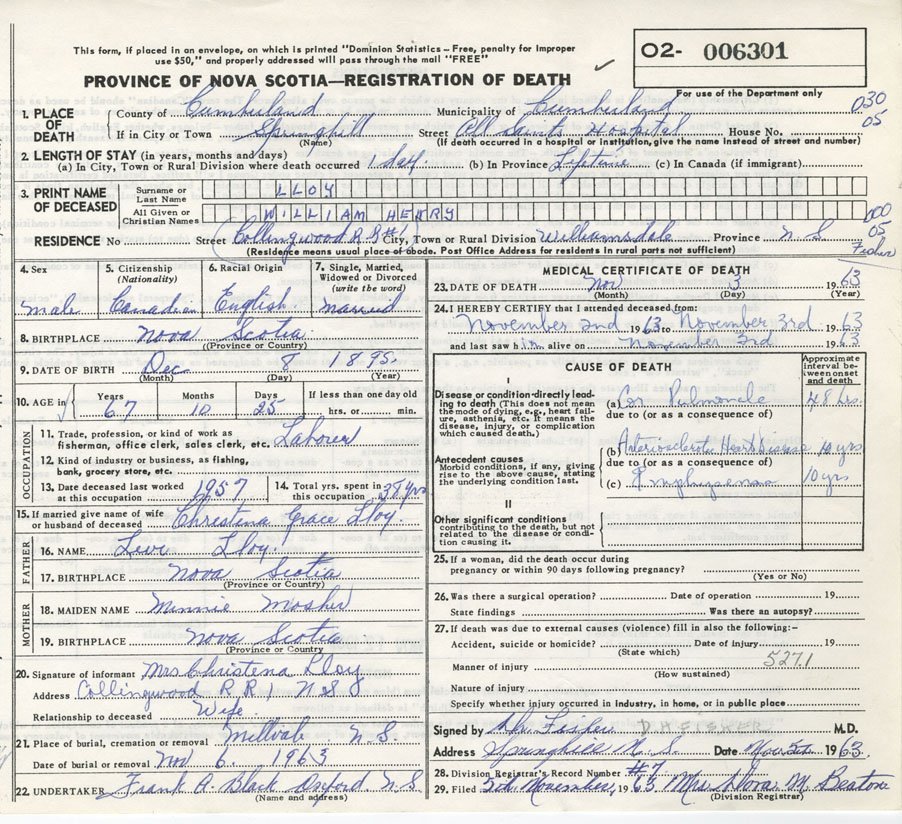 This form, if placed in an envelope, on which is printed "Dominion Statistics – Free, penalty for improper
use $50," and properly addressed will pass through the mail "FREE"
O2- 006301
For use of the Department only
PROVINCE OF NOVA SCOTIA—REGISTRATION OF DEATH
1. PLACE OF DEATH
County of Cumberland Municipality of Cumberland 030
If in City or Town Springhill Street All Saints Hospital House No. 05
(Name) (If death occurred in a hospital or institution, give the name instead of street and number)
2. LENGTH OF STAY (in years, months and days)
(a) In City, Town or Rural Division where death occurred 1 day. (b) In Province Lifetime (c) In Canada (if immigrant)
3. PRINT NAME OF DECEASED
Surname or Last Name LLOY
All Given or Christian Names WILLIAM HENRY
000
RESIDENCE No Street Collingwood R R #1 City, Town or Rural Division Williamsdale Province N S 05
(Residence means usual place of abode. Post Office Address for residents in rural parts not sufficient)
4. Sex male
5. Citizenship (Nationality) Canadian
6. Racial Origin English
7. Single, Married, Widowed or Divorced (write the word) married
8. BIRTHPLACE Nova Scotia
(Province or Country)
9. DATE OF BIRTH Dec 8 1895
(Month) (Day) (Year)
10. AGE in Years 67 Months 10 Days 25 If less than one day old hrs. or min.
OCCUPATION
11. Trade, profession, or kind of work as
fisherman, office clerk, sales clerk, etc. Laborer
12. Kind of industry or business, as fishing,
bank, grocery store, etc.
13. Date deceased last worked
at this occupation 1957
14. Total yrs. spent in
this occupation
15. If married give name of wife
or husband of deceased Christena Grace Lloy.
FATHER
16. NAME Levi Lloy.
17. BIRTHPLACE Nova Scotia
(Province or Country)
MOTHER
18. MAIDEN NAME Minnie Mosher
19. BIRTHPLACE Nova Scotia
(Province or Country)
20. Signature of informant Mrs Christena Lloy
Address Collingwood R R 1 N S
Relationship to deceased Wife
21. Place of burial, cremation or removal Millvale N S
Date of burial or removal Nov 6. 1963
22. UNDERTAKER Frank A. Black Oxford N.S.
(Name and address)
MEDICAL CERTIFICATE OF DEATH
23. DATE OF DEATH Nov 3 1963
(Month) (Day) (Year)
24. I HEREBY CERTIFY that I attended deceased from:
November 2nd 1963 to November 3rd 1963
and last saw him alive on November 3rd 1963
CAUSE OF DEATH
Approximate interval between onset and death
I
Disease or condition directly leading to death (This does not mean
the mode of dying, e.g., heart failure, asthenia, etc. It means the
disease, injury, or complication
which caused death.)
(a) Cor Pulmonale 48 hrs.
due to (or as a consequence of)
Antecedent causes
Morbid conditions, if any, giving
rise to the above cause, stating
the underlying condition last.
(b) Arteriosclerotic Heart Disease 10 yrs
due to (or as a consequence of)
(c) Emphysema 10 yrs
II
Other significant conditions
contributing to the death, but not
related to the disease or condition
causing it.
25. If a woman, did the death occur during
pregnancy or within 90 days following pregnancy?
(Yes or No)
26. Was there a surgical operation? Date of operation 19
State findings Was there an autopsy?
27. If death was due to external causes (violence) fill in also the following:–
Accident, suicide or homicide? Date of injury 19
(State which)
527.1
Manner of injury
(How sustained)
Nature of injury
Specify whether injury occurred in industry, in home, or in public place
Signed by D H Fisher D.H FISHER M.D.
Address Springhill N. S. Date Nov. 5th 1963
28. Division Registrar's Record Number #7
29. Filed 5th November, 1963 Mrs. Nora M. Beaton
(Division Registrar)